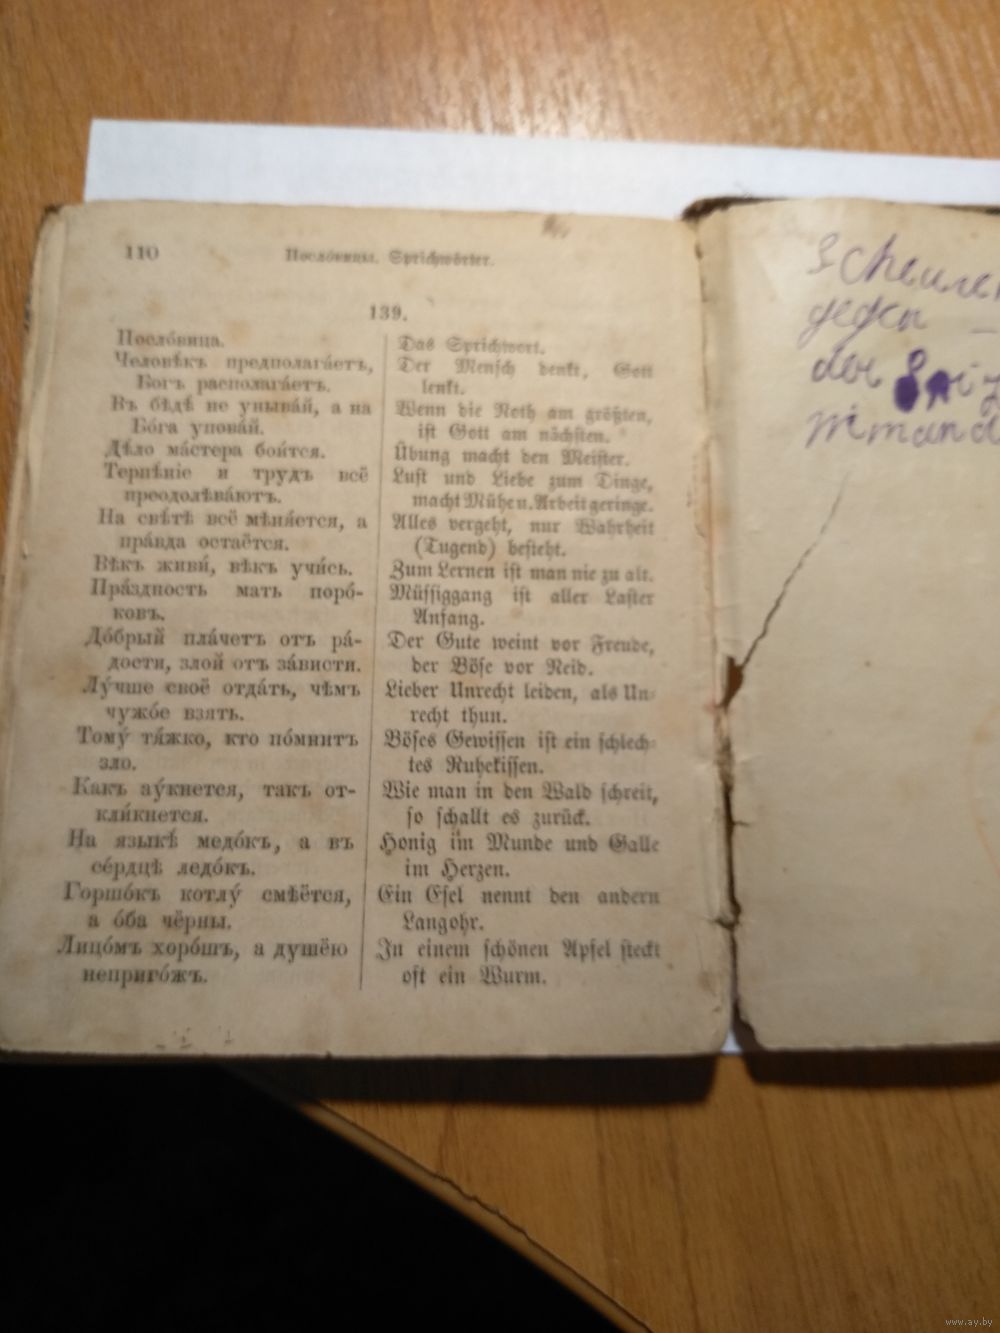 110
Посло́вицы. Sprichwörter.
139.
Посло́вица.
Человѣ́къ предполага́етъ,
Богъ располага́етъ.
Въ бѣдѣ́ не уныва́й, а на
Бо́га упова́й.
Дѣ́ло ма́стера бои́тся.
Терпѣ́ніе и трудъ всё
преодолѣва́ютъ.
На свѣ́тѣ всё мѣня́ется, а
пра́вда остаётся.
Вѣкъ живи́, вѣкъ учи́сь.
Пра́здность мать поро́-
ковъ.
До́брый пла́четъ отъ ра́-
дости, злой отъ за́висти.
Лу́чше своё отда́ть, чѣмъ
чужо́е взять.
Тому́ тя́жко, кто по́мнитъ
зло.
Какъ ау́кнется, такъ от-
кли́кнется.
На языкѣ́ медо́къ, а въ
се́рдцѣ ледо́къ.
Горшо́къ котлу́ смѣётся,
а о́ба чёрны.
Лицо́мъ хоро́шъ, а душёю
неприго́жъ.
Das Sprichwort.
Der Mensch denkt, Gott
lenkt.
Wenn die Noth am größten,
ist Gott am nächsten.
Übung macht den Meister.
Lust und Liebe zum Dinge,
macht Mühe u. Arbeit geringe.
Alles vergeht, nur Wahrheit
(Tugend) besteht.
Zum Lernen ist man nie zu alt.
Müssiggang ist aller Laster
Anfang.
Der Gute weint vor Freude,
der Böse vor Neid.
Lieber Unrecht leiden, als Un-
recht thun.
Böses Gewissen ist ein schlech-
tes Ruhekissen.
Wie man in den Wald schreit,
so schallt es zurück.
Honig im Munde und Galle
im Herzen.
Ein Esel nennt den andern
Langohr.
In einem schönen Apfel steckt
oft ein Wurm.
www.ay.by